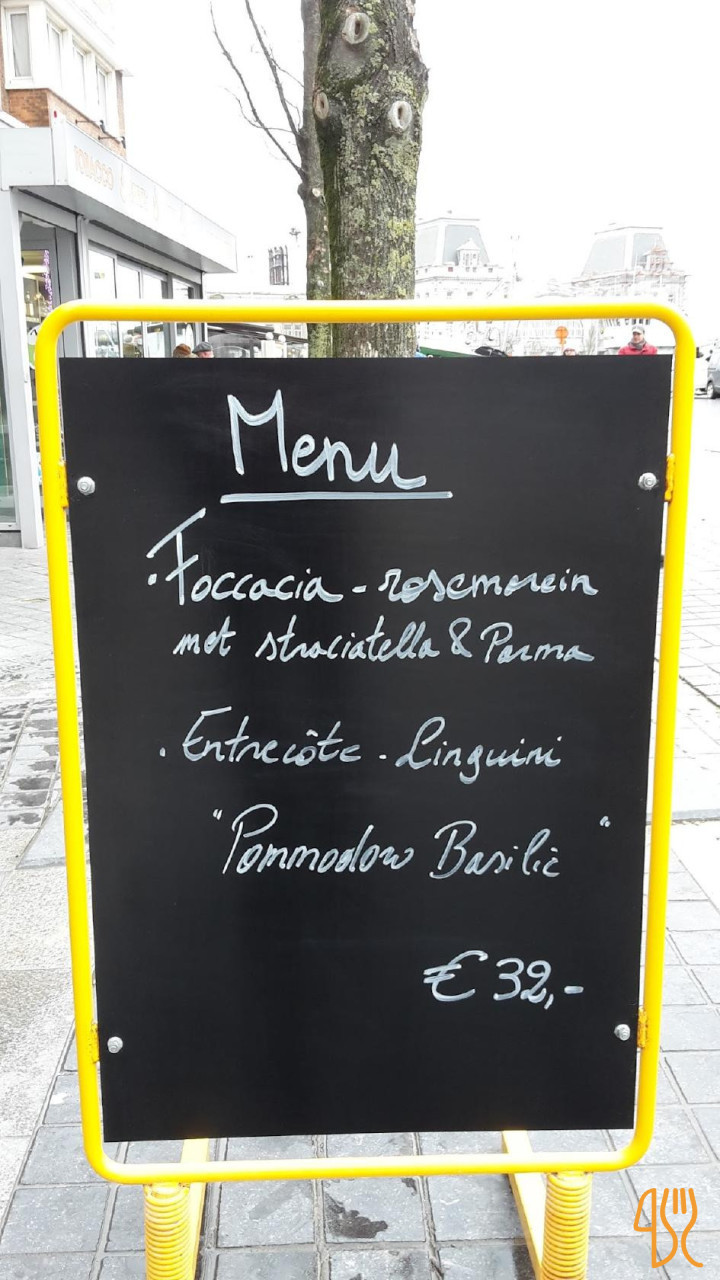 TOBACCO
Menu
· Foccacia - rosemarein
met straciatella & Parma
· Entrecôte - Linguini
"Pommodow Basilic"
€ 32,-